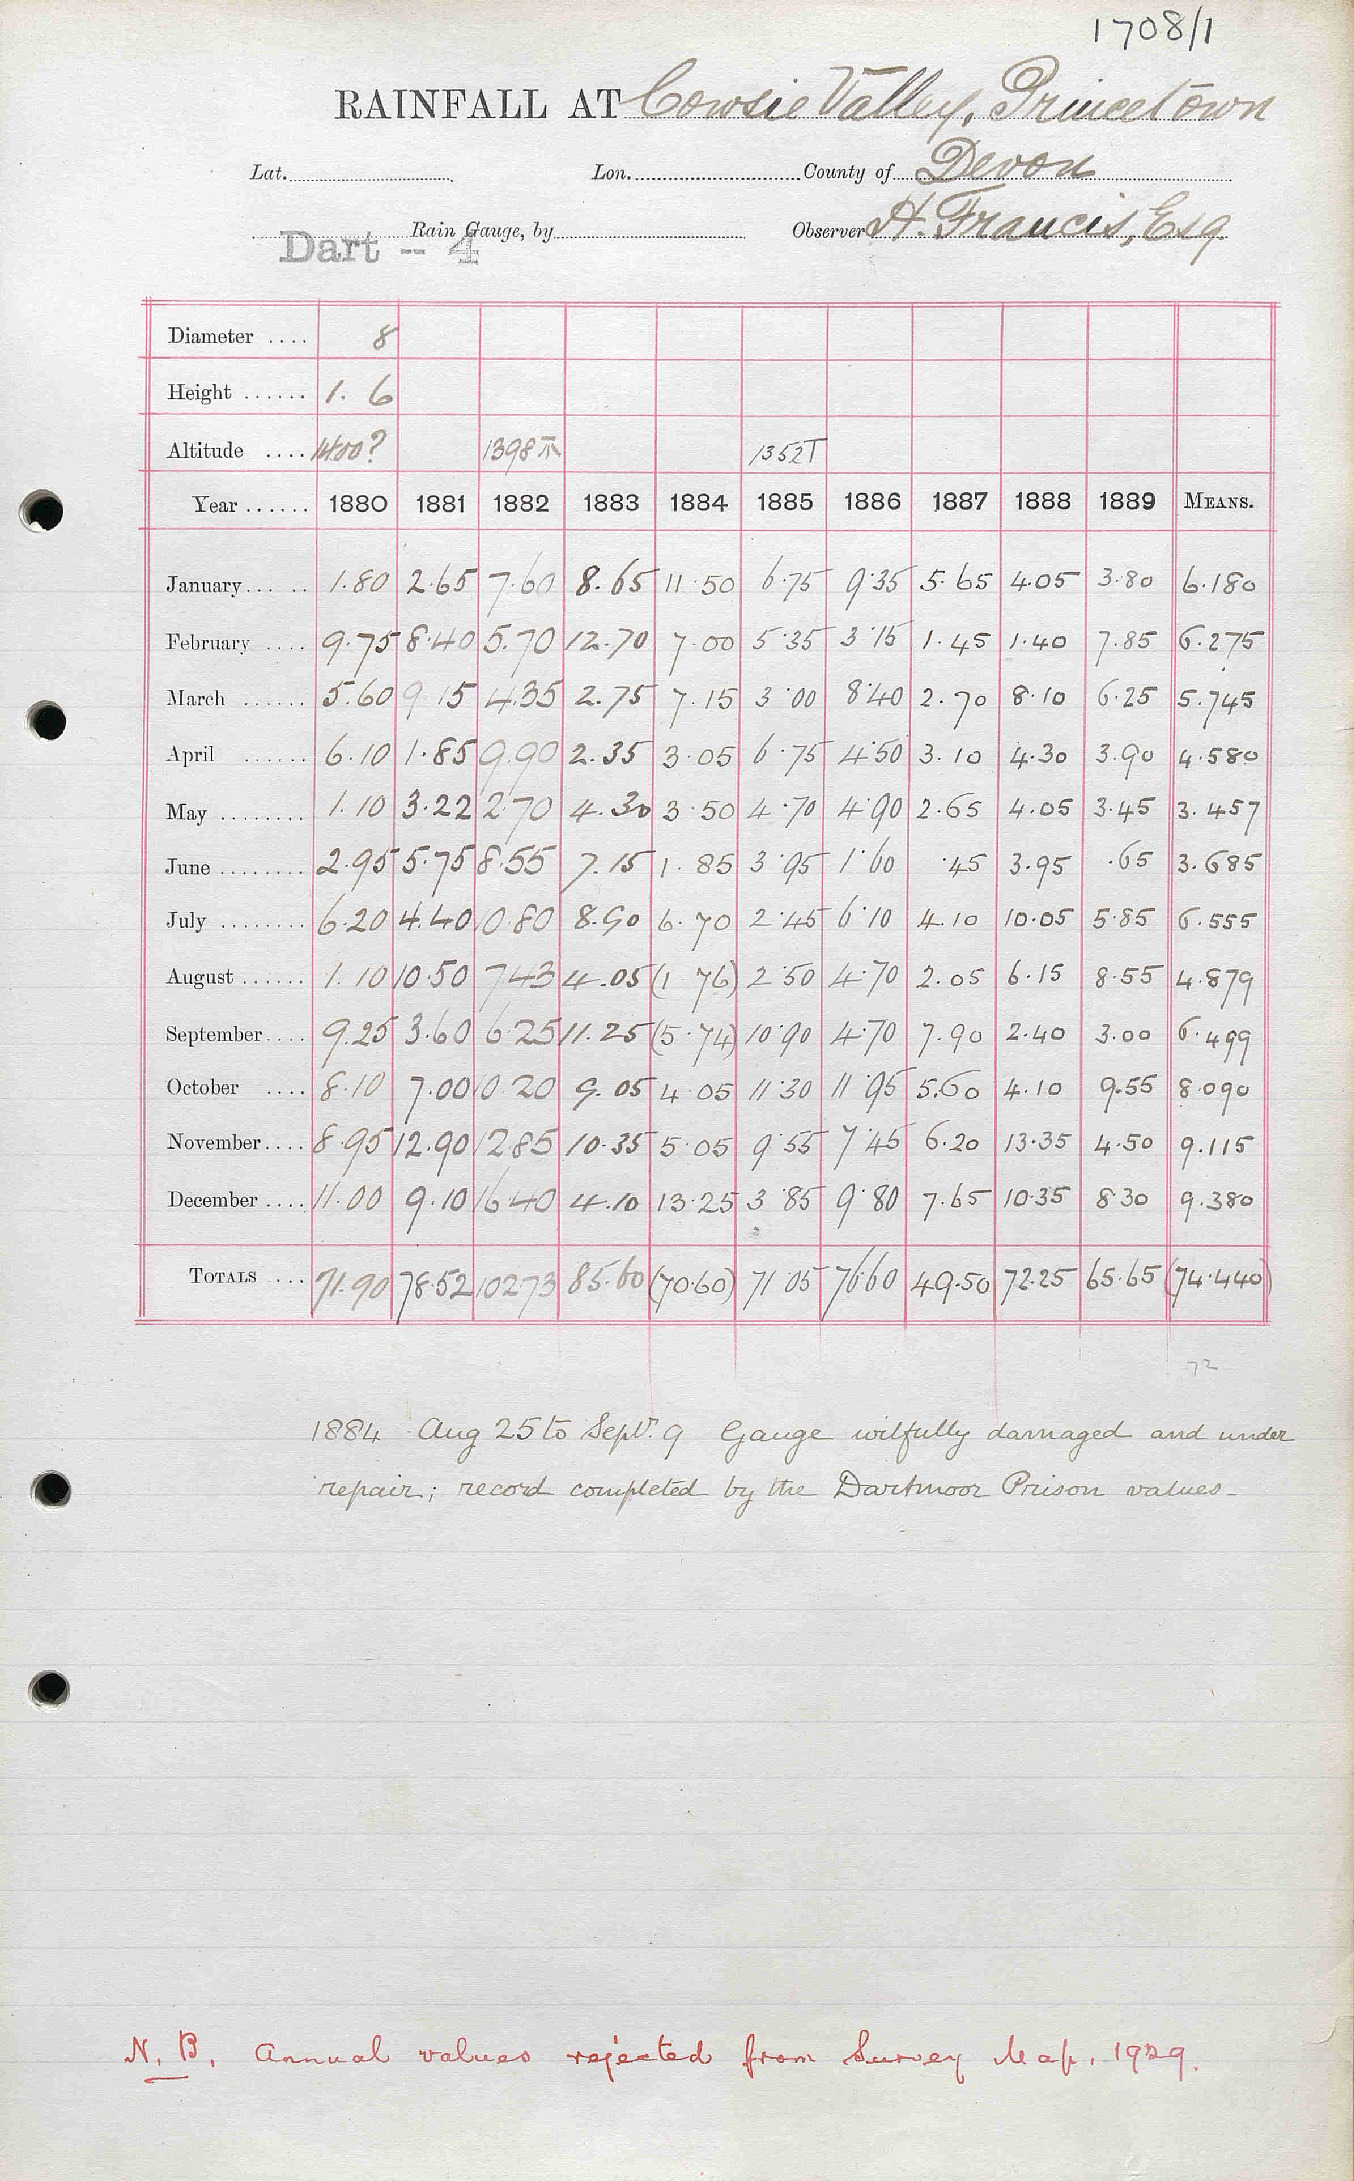 1708/1
RAINFALL AT Cowsie Valley, Princetown
Lat. Lon. County of Devon
Rain Gauge, by Observer H. Francis, Esq
Dart -- 4
Diameter .... 8
Height ...... 1. 6
Altitude .... 1400? 1398 1352T
Year ...... 1880 1881 1882 1883 1884 1885 1886 1887 1888 1889 MEANS.
January ..... 1.80 2.65 7.60 8.65 11.50 6.75 9.35 5.65 4.05 3.80 6.180
February .... 9.75 8.40 5.70 12.70 7.00 5.35 3.15 1.45 1.40 7.85 6.275
March ...... 5.60 9.15 4.35 2.75 7.15 3.00 8.40 2.70 8.10 6.25 5.745
April ...... 6.10 1.85 9.90 2.35 3.05 6.75 4.50 3.10 4.30 3.90 4.580
May ........ 1.10 3.22 2.70 4.30 3.50 4.70 4.90 2.65 4.05 3.45 3.457
June ........ 2.95 5.75 8.55 7.15 1.85 3.95 1.60 .45 3.95 .65 3.685
July ........ 6.20 4.40 10.80 8.90 6.70 2.45 6.10 4.10 10.05 5.85 6.555
August ...... 1.10 10.50 7.43 4.05 (1.76) 2.50 4.70 2.05 6.15 8.55 4.879
September.... 9.25 3.60 6.25 11.25 (5.74) 10.90 4.70 7.90 2.40 3.00 6.499
October .... 8.10 7.00 10.20 9.05 4.05 11.30 11.95 5.60 4.10 9.55 8.090
November.... 8.95 12.90 12.85 10.35 5.05 9.55 7.45 6.20 13.35 4.50 9.115
December .... 11.00 9.10 16.40 4.10 13.25 3.85 9.80 7.65 10.35 8.30 9.380
TOTALS ... 71.90 78.52 102.73 85.60 (70.60) 71.05 76.60 49.50 72.25 65.65 (74.440)
72
1884 Aug 25 to Sept. 9 Gauge wilfully damaged and under
repair; record completed by the Dartmoor Prison values.
N. B. Annual values rejected from Survey Map. 1929.